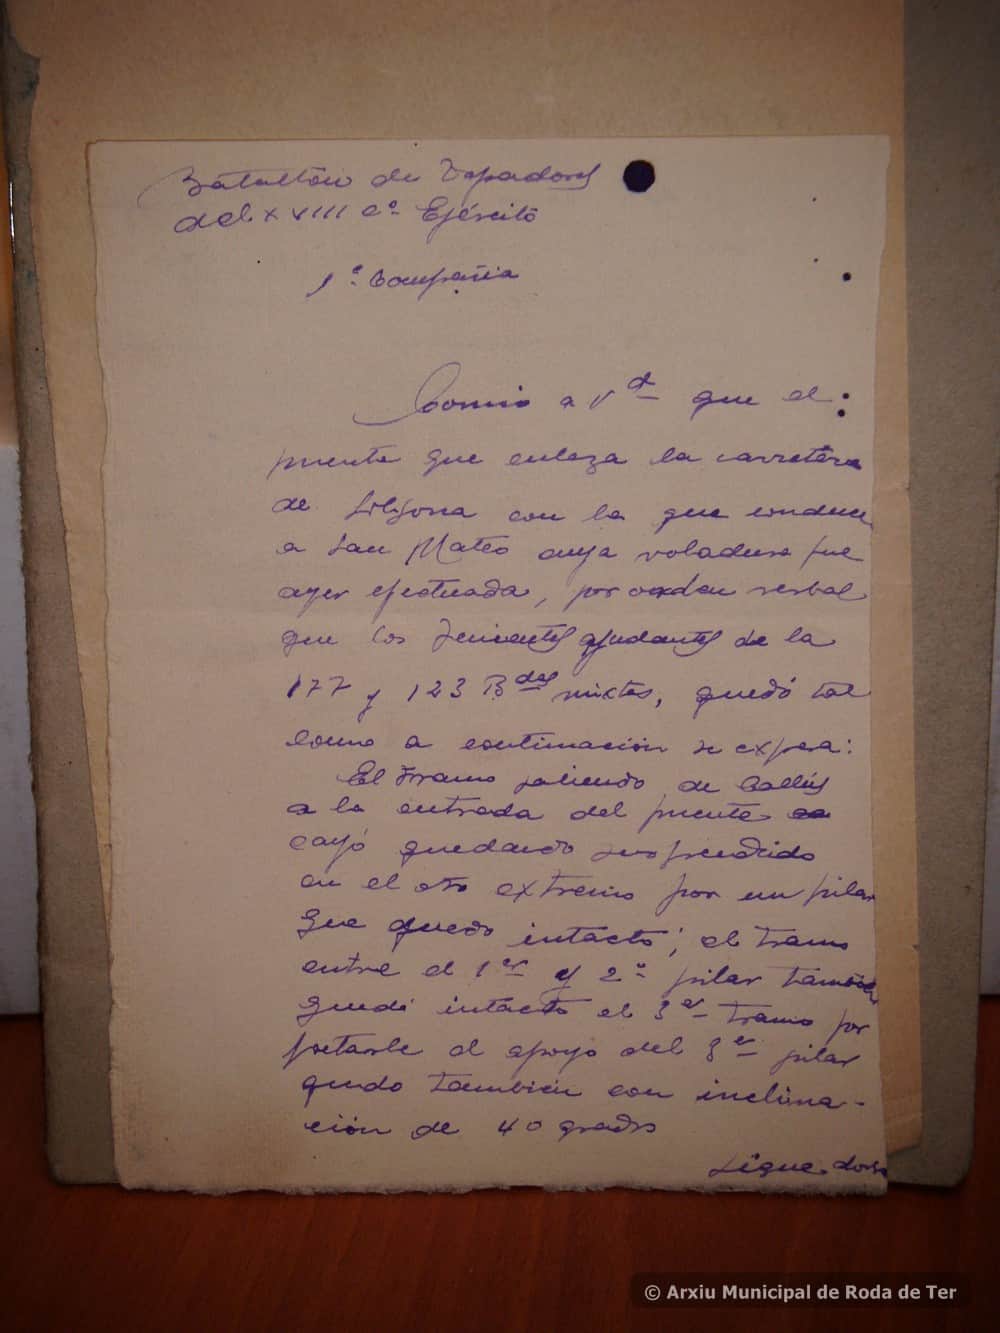 Batallón de Zapadores
del XVIII Cº Ejército
1ª Compañia
Comunico a Vd que el
puente que enlaza la carretera
de con la que conduce
a San Mateo cuya voladura fue
ayer efectuada, por orden verbal
que los Tenientes ayudantes de la
177 y 123 Bdas mixtas, quedó tal
como a continuación se expresa:
El tramo saliendo de Callús
a la entrada del puente
cayó quedando suspendido
en el otro extremo por un pilar
que quedo intacto; el tramo
entre el 1er y 2º pilar tambien
quedó intacto el 3er tramo por
faltarle el apoyo del 3er pilar
quedo tambien con inclina-
ción de 40 grados
Sigue dorso
© Arxiu Municipal de Roda de Ter